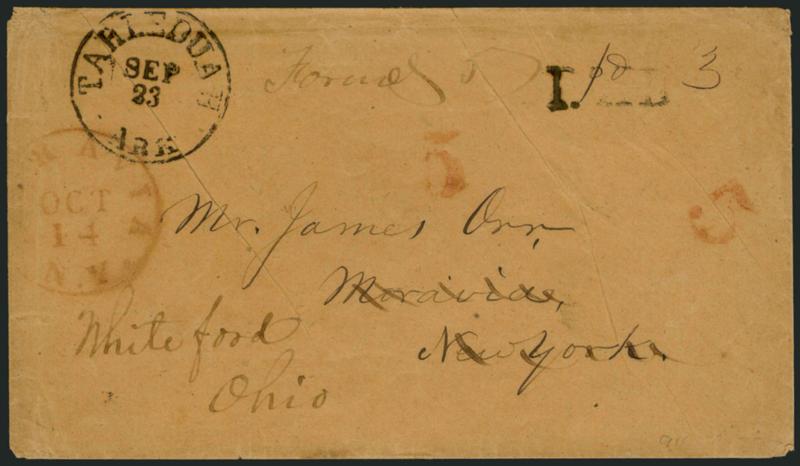 TAHLEQUAH
SEP
23
ARK
Forwd 5
1. pd 3
5
5
OCT
14
N.Y.
Mr. James Orr,
Moravia,
New York.
Whiteford
Ohio